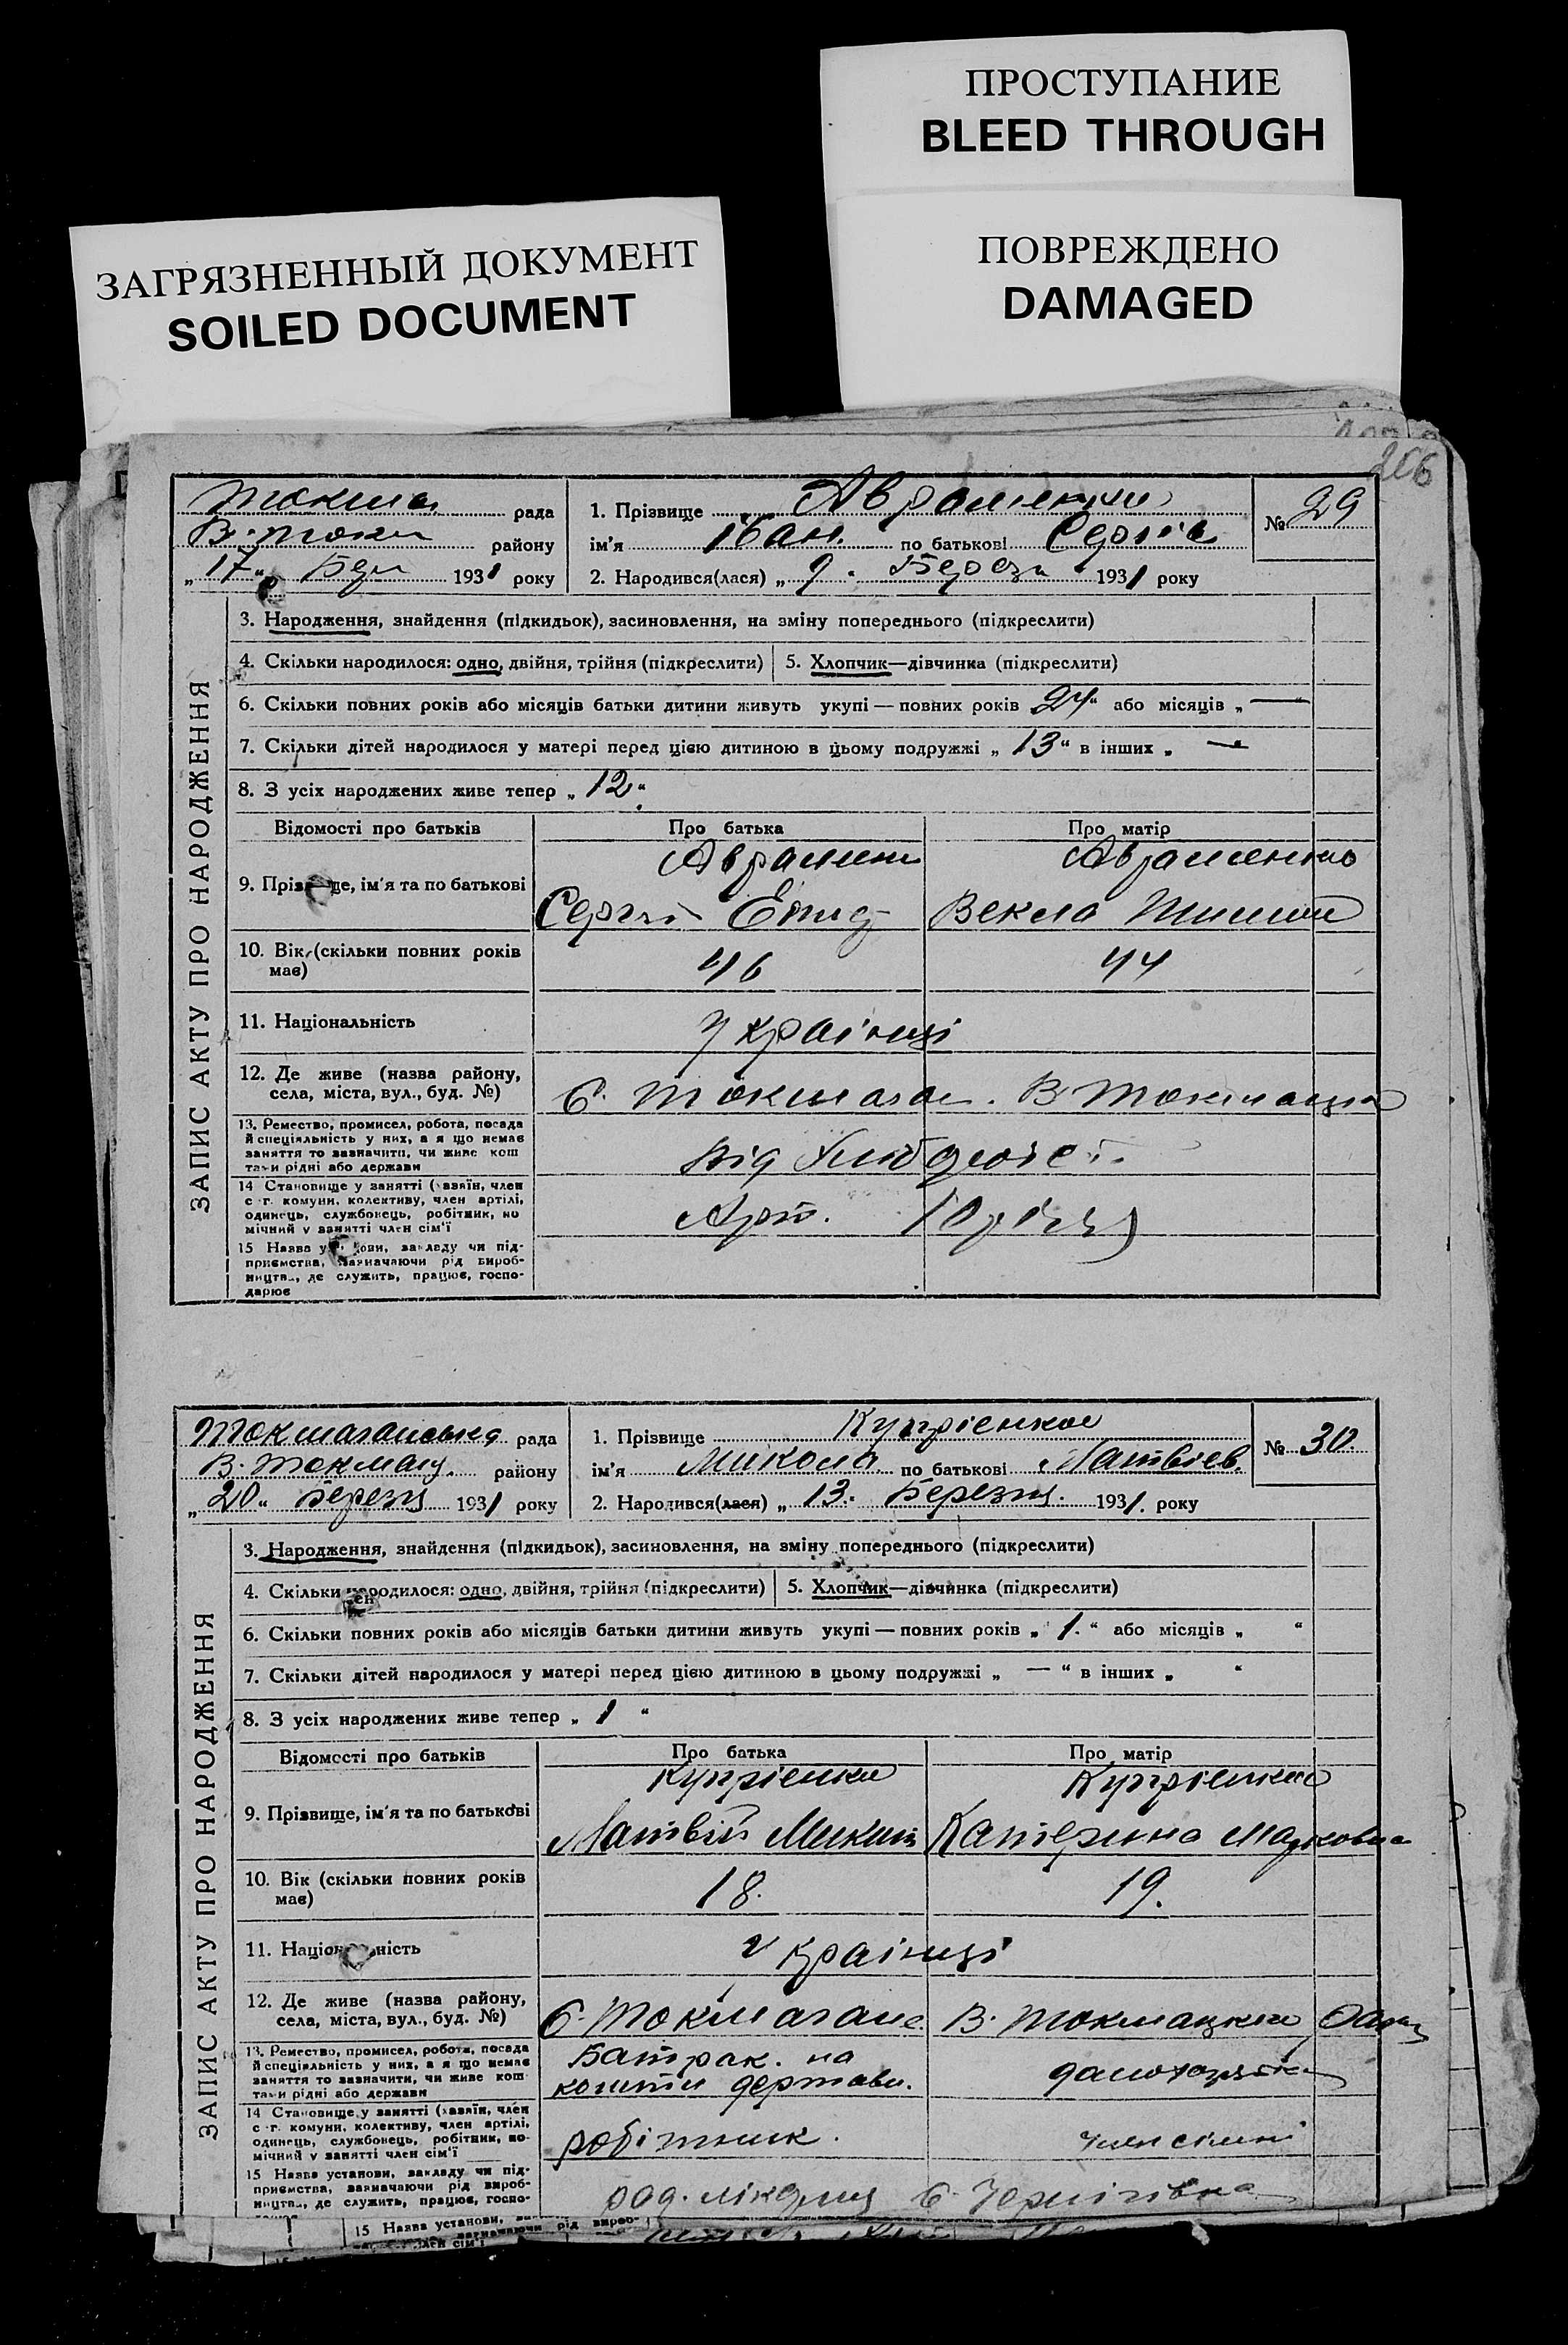 ПРОСТУПАНИЕ
BLEED THROUGH
ЗАГРЯЗНЕННЫЙ ДОКУМЕНТ
SOILED DOCUMENT
ПОВРЕЖДЕНО
DAMAGED
206
рада
В. Токм району
„17“ Бер 1931 року
1. Прізвище Авраменко
ім'я Іван. по батькові Сергів
2. Народився(лася) „9“ Березн 1931 року
№ 29
ЗАПИС АКТУ ПРО НАРОДЖЕННЯ
3. Народження, знайдення (підкидьок), засиновлення, на зміну попереднього (підкреслити)
4. Скільки народилося: одно, двійня, трійня (підкреслити) 5. Хлопчик—дівчинка (підкреслити)
6. Скільки повних років або місяців батьки дитини живуть укупі — повних років „24“ або місяців „—“
7. Скільки дітей народилося у матері перед цією дитиною в цьому подружжі „13“ в інших „—“
8. З усіх народжених живе тепер „12“
Відомості про батьків Про батька Про матір
Авраменк Авраменко
9. Прізвище, ім'я та по батькові
Сергій Векла
10. Вік (скільки повних років має) 46 44
11. Національність Українці
12. Де живе (назва району,
села, міста, вул., буд. №)
13. Ремество, промисел, робота, посада
й спеціяльність у них, а я що немає
заняття то зазначити, чи живе кош
тами рідні або держави
14 Становище у занятті (хазяїн, член
с.-г. комуни, колективу, член артілі,
одинець, службовець, робітник, по
мічний у занятті член сім'ї
Арт.
15 Назва установи, закладу чи під-
приємства, зазначаючи рід вироб-
ництва, де служить, працює, госпо-
дарює
Токмачанська рада
В. Токмац. району
„20“ Березн 1931 року
1. Прізвище Купрієнко
ім'я Микола по батькові Матвієв.
2. Народився(лася) „13“ Березня. 1931. року
№ 30.
ЗАПИС АКТУ ПРО НАРОДЖЕННЯ
3. Народження, знайдення (підкидьок), засиновлення, на зміну попереднього (підкреслити)
4. Скільки народилося: одно, двійня, трійня (підкреслити) 5. Хлопчик—дівчинка (підкреслити)
6. Скільки повних років або місяців батьки дитини живуть укупі — повних років „1.“ або місяців „ “
7. Скільки дітей народилося у матері перед цією дитиною в цьому подружжі „—“ в інших „ “
8. З усіх народжених живе тепер „1“
Відомості про батьків Про батька Про матір
Купрієнко Купрієнко
9. Прізвище, ім'я та по батькові
Матвій Микит Катерина Марковна
10. Вік (скільки повних років має) 18. 19.
11. Національність Українці
12. Де живе (назва району,
села, міста, вул., буд. №)
В. Токмацкого
13. Ремество, промисел, робота, посада
й спеціяльність у них, а я що немає
заняття то зазначити, чи живе кош
тами рідні або держави
Батрак. на
кошти держави.
домохазяйка
14 Становище у занятті (хазяїн, член
с.-г. комуни, колективу, член артілі,
одинець, службовець, робітник, по-
мічний у занятті член сім'ї
робітник. член сімї
15 Назва установи, закладу чи під-
приємства, зазначаючи рід вироб-
ництва, де служить, працює, госпо-
с. Чернігівка
15 Назва установи,